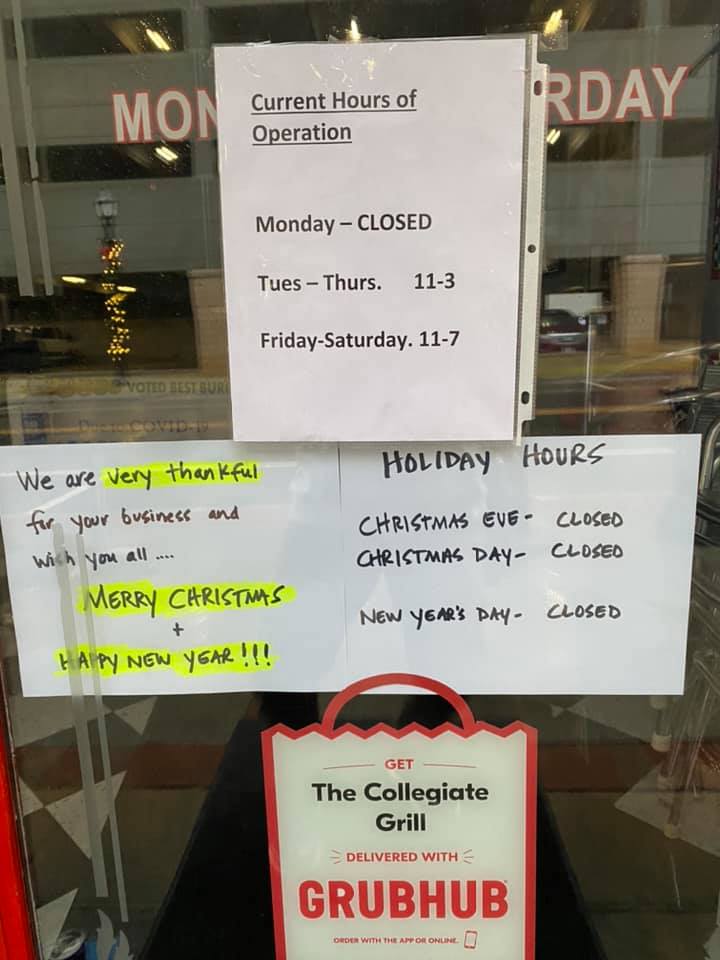 MON
RDAY
Current Hours of
Operation
Monday – CLOSED
Tues – Thurs. 11-3
Friday-Saturday. 11-7
VOTED BEST BUR
Due to COVID-19
We are very thankful
for your business and
wish you all ....
MERRY CHRISTMAS
+
HAPPY NEW YEAR !!!
HOLIDAY HOURS
CHRISTMAS EVE - CLOSED
CHRISTMAS DAY - CLOSED
NEW YEAR'S DAY - CLOSED
GET
The Collegiate
Grill
DELIVERED WITH
GRUBHUB
ORDER WITH THE APP OR ONLINE.